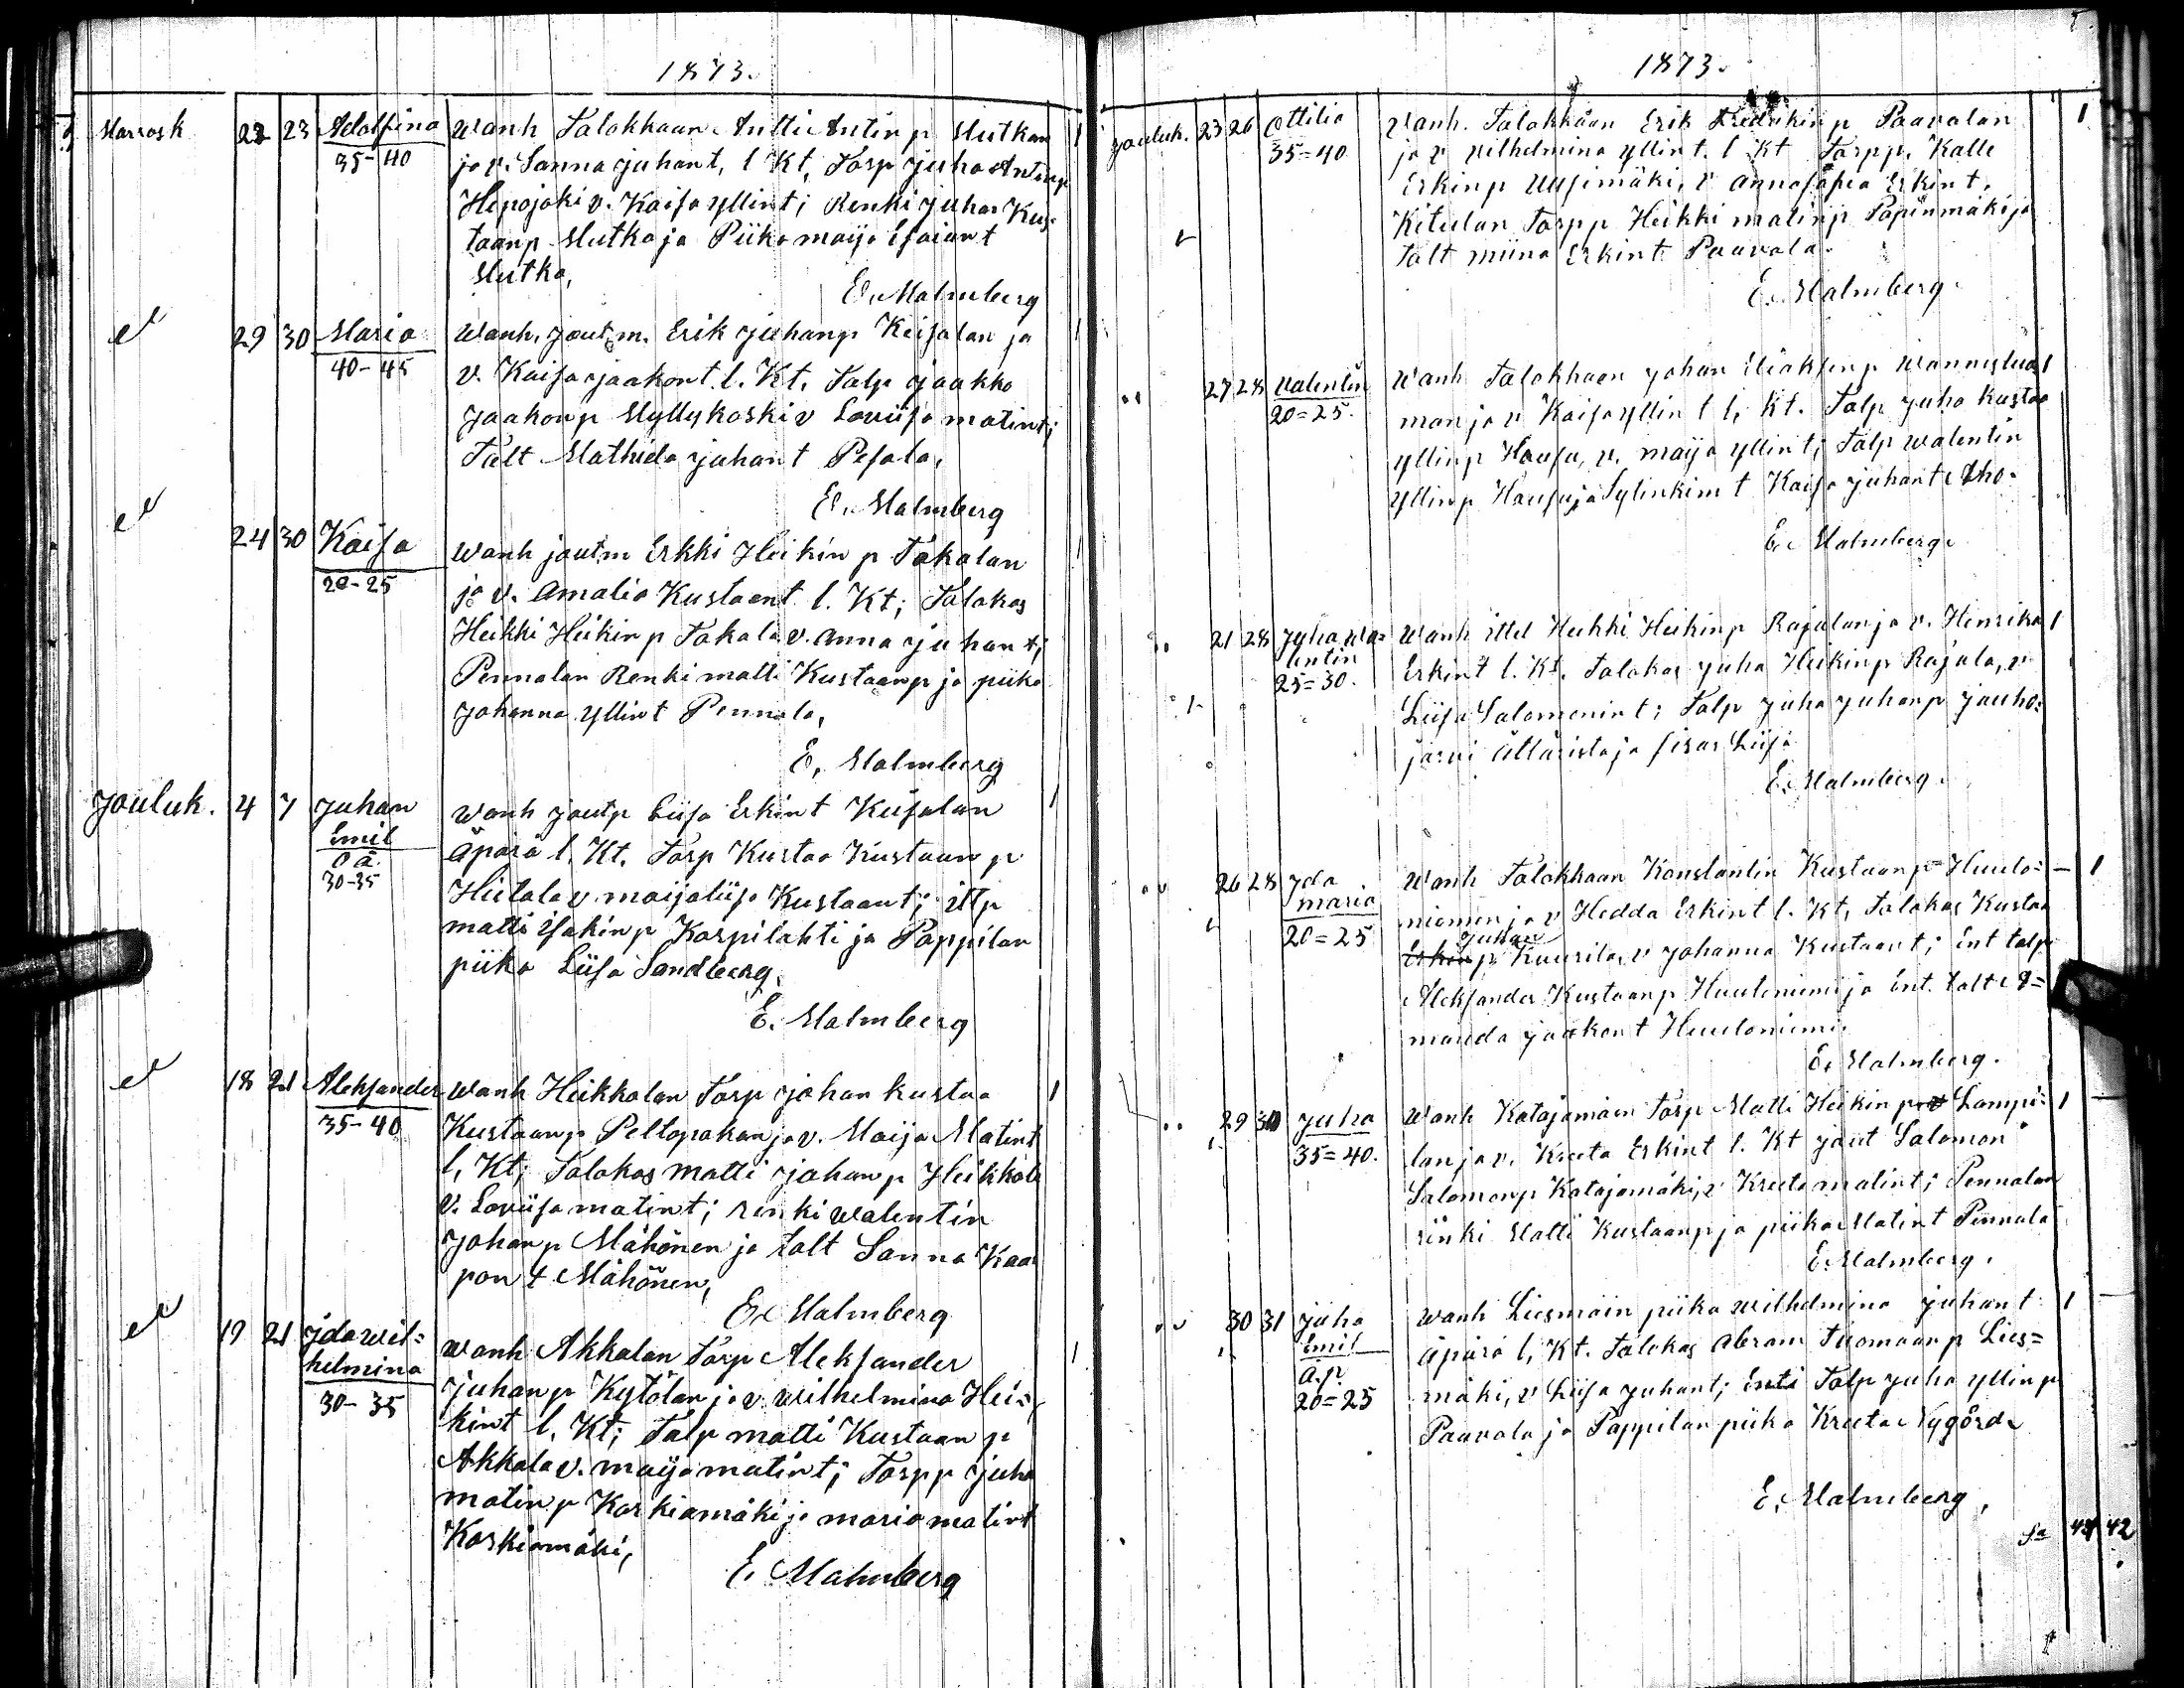 1873.
Marrosk 22 23 Adolfina Wanh Talokkaan Antti Antin p Mutkan 1
35-40 ja v. Sanna Juhant, l Kt, Torp Juha Antinp
Hepojoki v. Kaisa Yllint; Renki Juha Kus-
taanp Mutka ja Piika Maija Esaiant
Mutka,
E. Malmberg
29 30 Maria Wanh. Joutm. Erik Juhanp Keisalan ja 1
40-45 v. Kaisa Jaakont. l. Kt. Talp Jaakko
Jaakonp Myllykoski v Loviisa Matint;
Talt Mathida Juhant Pesola,
E. Malmberg
24 30 Kaisa Wanh joutm Erkki Heikin p Takalan 1
20-25 ja v. Amalia Kustaant l. Kt; Talokas
Heikki Heikin p Takala v. Anna Juhant;
Pennalan Renki Matti Kustaanp ja piika
Johanna Yllint Pennala,
E. Malmberg
Jouluk. 4 7 Juhan Wanh Joutp Liisa Erkint Keisalan 1
Emil
O ä. äpärä l. Kt. Torp Kustaa Kustaan p
30-35 Hietala v. Maijaliisa Kustaant; Ittp
Matti Isakin p Korpilahti ja Pappilan
piika Liisa Sandberg,
E. Malmberg
18 21 Aleksander Wanh Heikkolan Torp Johan Kustaa 1
35-40 Kustaanp Peltopakan ja v. Maija Matint
l, Kt; Talokas Matti Johan p Heikkola
v. Loviisa Matint; renki Walentin
Johan p Mähönen ja talt Sanna Kaa
pon t Mähönen,
E. Malmberg
19 21 Ida Wil= Wanh Akkalan Torp Aleksander 1
helmina Juhan p Kytölan ja v. Wilhelmina Hei=
30-35 kint l. Kt; Talp Matti Kustaan p
Akkala v. Maija Matint; Torpp Juha
Matin p Koskiamäki ja Maria Matint
Koskiamäki,
E. Malmberg
1873.
Jouluk. 23 26 Ottilia Wanh. Talokkaan Erik Fredrikin p Paavolan 1
35=40 ja v Vilhelmina Yllint. l Kt Torpp. Kalle
Erkin p Uusimäki, v Annasofia Erkint.
Kitulan Torpp Heikki Matinp Papinmäki ja
Talt Miina Erkint Paavola.
E. Malmberg
27 28 Valentin Wanh Talokkaan Johan Eliaksen p Wannistuo 1
20=25. man ja v Kaisa Yllin t l. Kt. Talp Juha Kustaa
Yllin p Haasu, v. Maija Yllint; Talp Walentin
Yllin p Haasu ja Sylinkim t Kaisa Juhant Aho.
E. Malmberg.
21 28 Juha Wa= Wanh ittel Heikki Heikin p Rajalan ja v. Henrika 1
lentin Erkint l. Kt. Talokas Juha Heikin p Rajala, v
25=30. Liisa Salomonint; Talp Juha Juhan p Jauho=
järvi Ätläristä ja sisar Liisa
E. Malmberg.
26 28 Ida Wanh Talokkaan Konstantin Kustaan p Huulo= 1
Maria niemen ja v Hedda Erkint l. Kt, Talokas Kustaa
20=25 Juhan
Erkin p Kaurila, v Johanna Kustaant; Ent talp
Aleksander Kustaan p Huuloniemi ja Ent. talt A=
manda Jaakont Huuloniemi.
E. Malmberg.
29 30 Juha Wanh Katajamäen Torp Matti Heikin p Lampi= 1
35=40. lan ja v. Kreeta Erkint l. Kt jout Salomon
Salomonp Katajamäki, v Kreeta Matint; Pennalan
rinki Matti Kustaanp ja piika Matint Pennala
E. Malmberg.
30 31 Juha Wanh Liesmäin piika Wilhelmina Juhant 1
Emil äpärä l, Kt. Talokas Abram Tuomaan p Lies=
Äp. mäki, v Liisa Juhant; Enti Talp Juha Yllin p
20=25 Paavola ja Pappilan piika Kreeta Nygård
E. Malmberg,
Sa 42